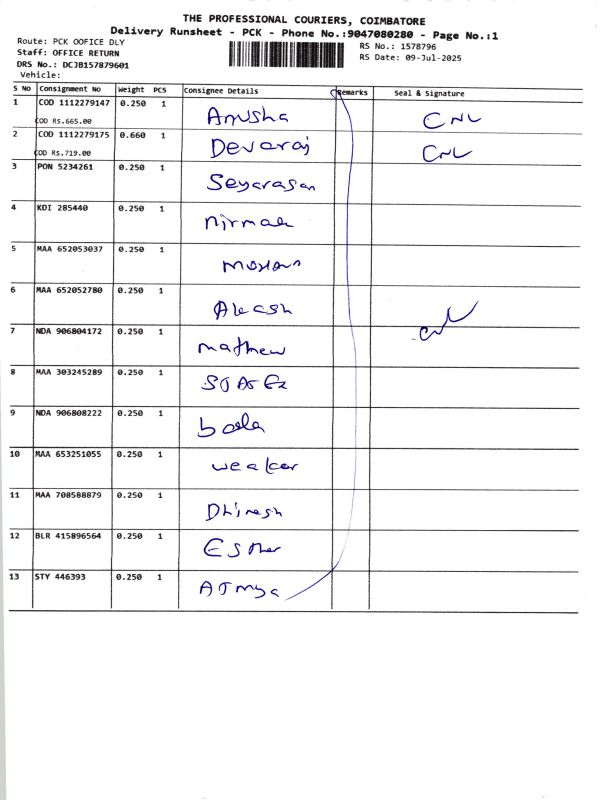 THE PROFESSIONAL COURIERS, COIMBATORE
Delivery Runsheet - PCK - Phone No.:9047080280 - Page No.:1
Route: PCK OOFICE DLY
RS No.: 1578796
Staff: OFFICE RETURN
RS Date: 09-Jul-2025
DRS No.: DCJB157879601
Vehicle:
S No Consignment No Weight PCS Consignee Details Remarks Seal & Signature
1 COD 1112279147 0.250 1 Anusha
COD RS.665.00
2 COD 1112279175 0.660 1 Devaraj
COD RS.719.00
3 PON 5234261 0.250 1
4 KDI 285440 0.250 1
5 MAA 652053037 0.250 1
6 MAA 652052780 0.250 1 Akash
7 NDA 906804172 0.250 1 mathew
8 MAA 303245289 0.250 1
9 NDA 906808222 0.250 1 bala
10 MAA 653251055 0.250 1
11 MAA 708588879 0.250 1 Dhinesh
12 BLR 415896564 0.250 1 Esther
13 STY 446393 0.250 1